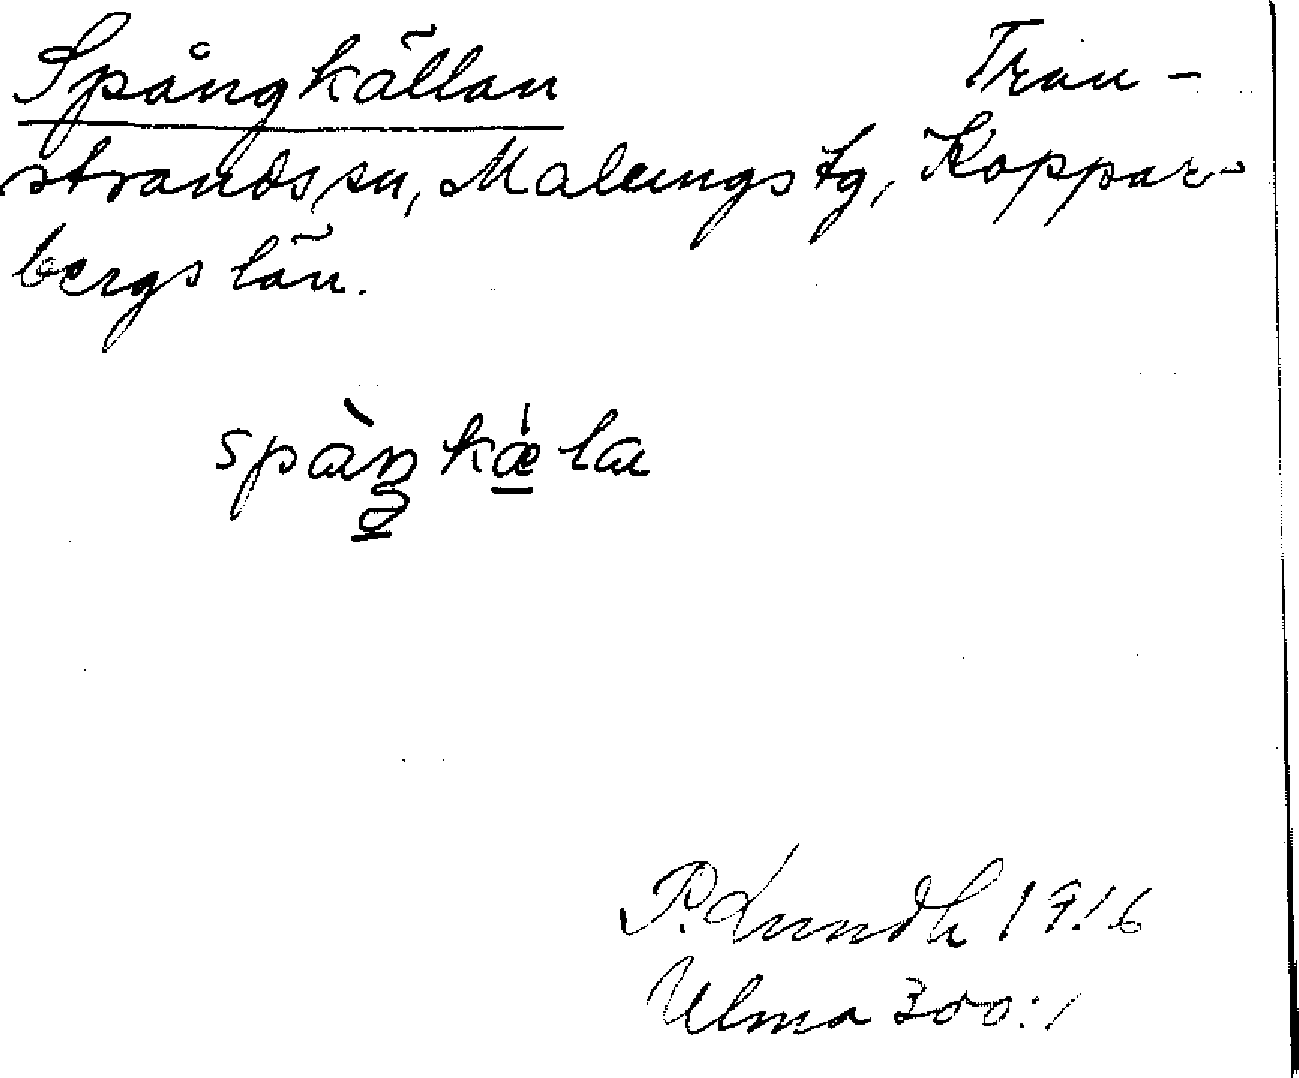 Spångkällan Tran-
strands sn, Malungs tg, Koppar-
bergs län.
spàŋkǽla
P. Lundh 1916
Ulma 300:1